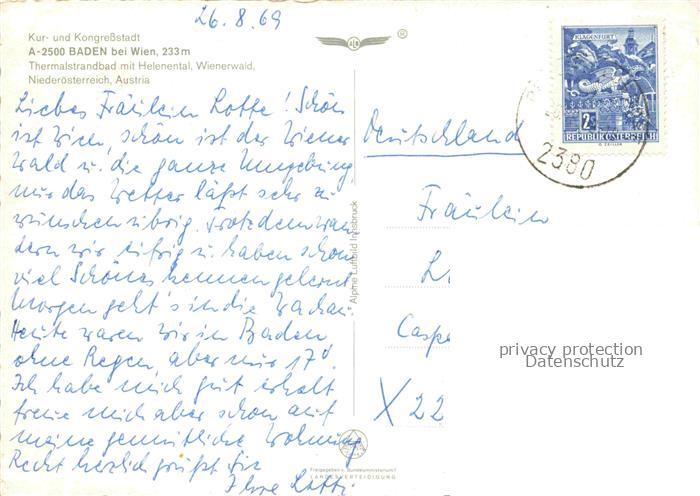 26.8.69
Kur- und Kongreßstadt
A-2500 BADEN bei Wien, 233 m
Thermalstrandbad mit Helenental, Wienerwald,
Niederösterreich, Austria
Liebes Fräulein Lotte! Schön
ist Wien, schön ist der Wiener
Wald u. die ganze Umgebung
nur das Wetter läßt sehr zu
wünschen übrig. Trotzdem wan
dern wir eifrig u. haben schon
viel Schönes kennen gelernt
Morgen geht's in die Wachau.
Heute waren wir in Baden
ohne Regen, aber nur 17°.
Ich habe mich gut erholt
freue mich aber schon auf
meine gemütliche Wohnung
Recht herzlich grüßt Sie
Ihre Lotti
Alpine Luftbild Innsbruck
Freigegeben v. Bundesministerium f.
LANDESVERTEIDIGUNG
KLAGENFURT
2S
REPUBLIK ÖSTERREICH
2380
Deutschland
Fräulein
L
Caspa
X 22
privacy protection
Datenschutz